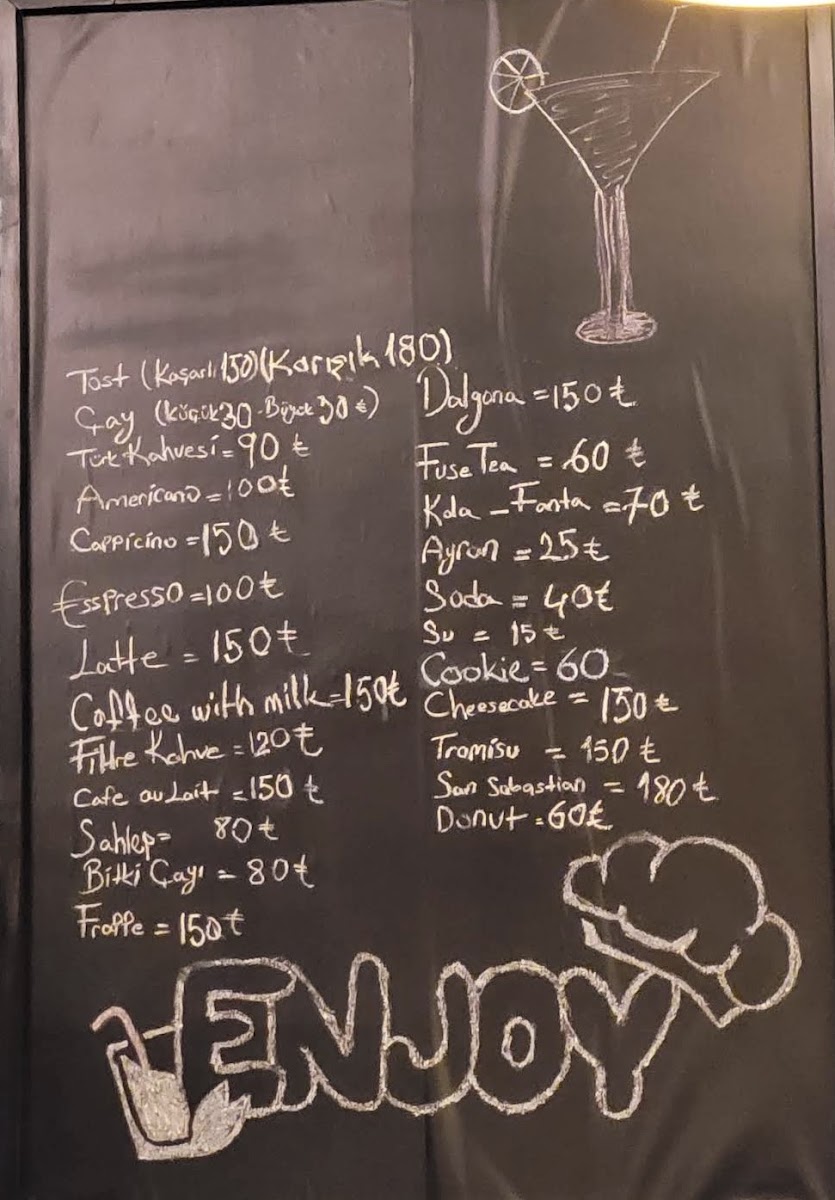 Tost (Kaşarlı 150) (Karışık 180)
Çay (küçük 30 - Büyük 30 ₺)
Türk Kahvesi = 90 ₺
Americano = 100₺
Cappicino = 150 ₺
Esspresso = 100₺
Latte = 150₺
Coffee with milk = 150₺
Filtre Kahve = 120₺
Cafe au Lait = 150 ₺
Sahlep = 80₺
Bitki Çayı = 80₺
Frappe = 150₺
Dalgona = 150₺
Fuse Tea = 60 ₺
Kola - Fanta = 70 ₺
Ayran = 25₺
Soda = 40₺
Su = 15₺
Cookie = 60
Cheesecake = 150₺
Tramisu = 150₺
San Sabastian = 180₺
Donut = 60₺
ENJOY